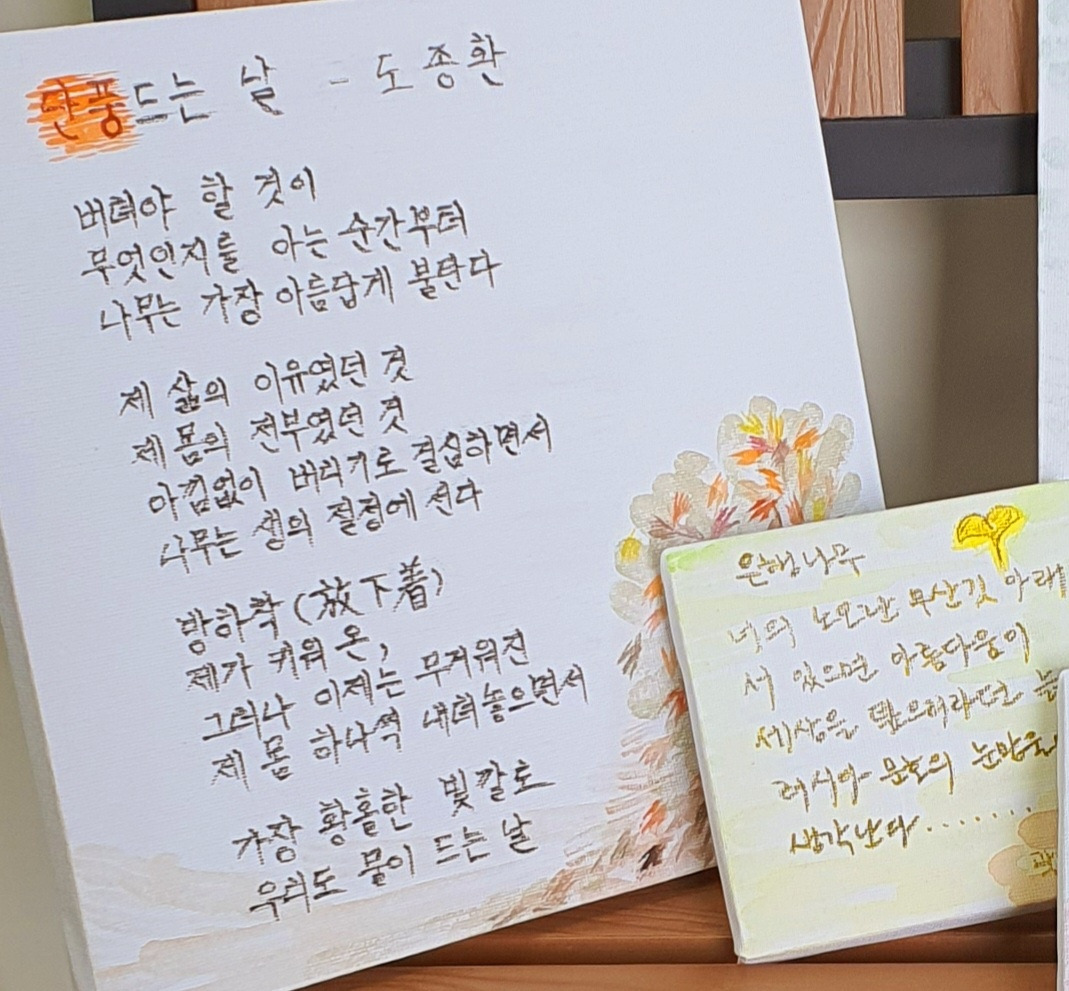 단풍드는 날 - 도종환
버려야 할 것이
무엇인지를 아는 순간부터
나무는 가장 아름답게 불탄다
제 삶의 이유였던 것
제 몸의 전부였던 것
아낌없이 버리기로 결심하면서
나무는 생의 절정에 선다
방하착(放下着)
제가 키워 온,
그러나 이제는 무거워진
제 몸 하나씩 내려놓으면서
가장 황홀한 빛깔로
우리도 물이 드는 날
은행나무
너의 노오란 우산깃 아래
서 있으면 아름다움이
세상을 덮으리라던
러시아 문호의 눈망울
생각난다.......